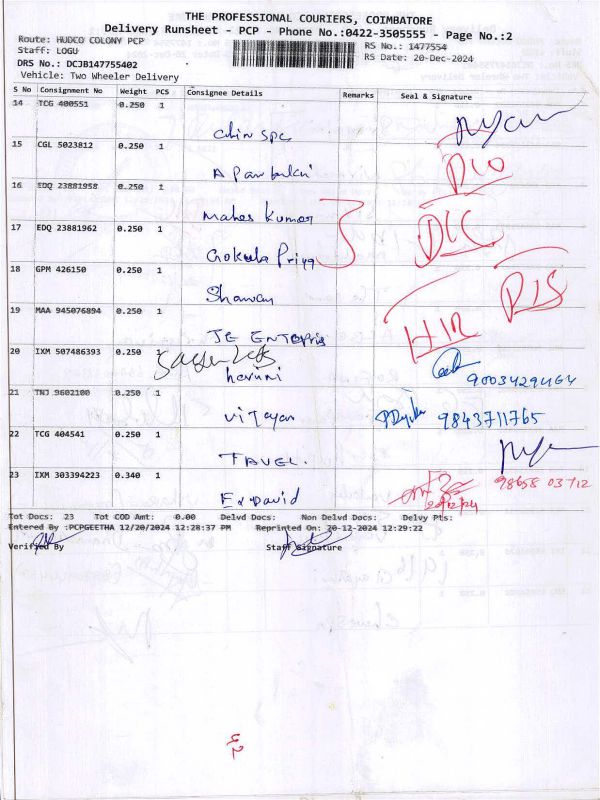 THE PROFESSIONAL COURIERS, COIMBATORE
Delivery Runsheet - PCP - Phone No.:0422-3505555 - Page No.:2
Route: HUDCO COLONY PCP
RS No.: 1477554
Staff: LOGU
RS Date: 20-Dec-2024
DRS No.: DCJB147755402
Vehicle: Two Wheeler Delivery
S No Consignment No Weight PCS Consignee Details Remarks Seal & Signature
14 TCG 400551 0.250 1
15 CGL 5023812 0.250 1
16 EDQ 23881958 0.250 1
Mahes Kumar
17 EDQ 23881962 0.250 1
Gokula Priya
18 GPM 426150 0.250 1
19 MAA 945076894 0.250 1
20 IXM 507486393 0.250 1
harini
9003429464
21 TNJ 9602100 0.250 1
Vijayan
9843711765
22 TCG 404541 0.250 1
TRAVEL.
23 IXM 303394223 0.340 1
98658 03712
David
20/12/24
Tot Docs: 23 Tot COD Amt: 0.00 Delvd Docs: Non Delvd Docs: Delvy Pts:
Entered By :PCPGEETHA 12/20/2024 12:28:37 PM Reprinted On: 20-12-2024 12:29:22
Verified By Staff Signature